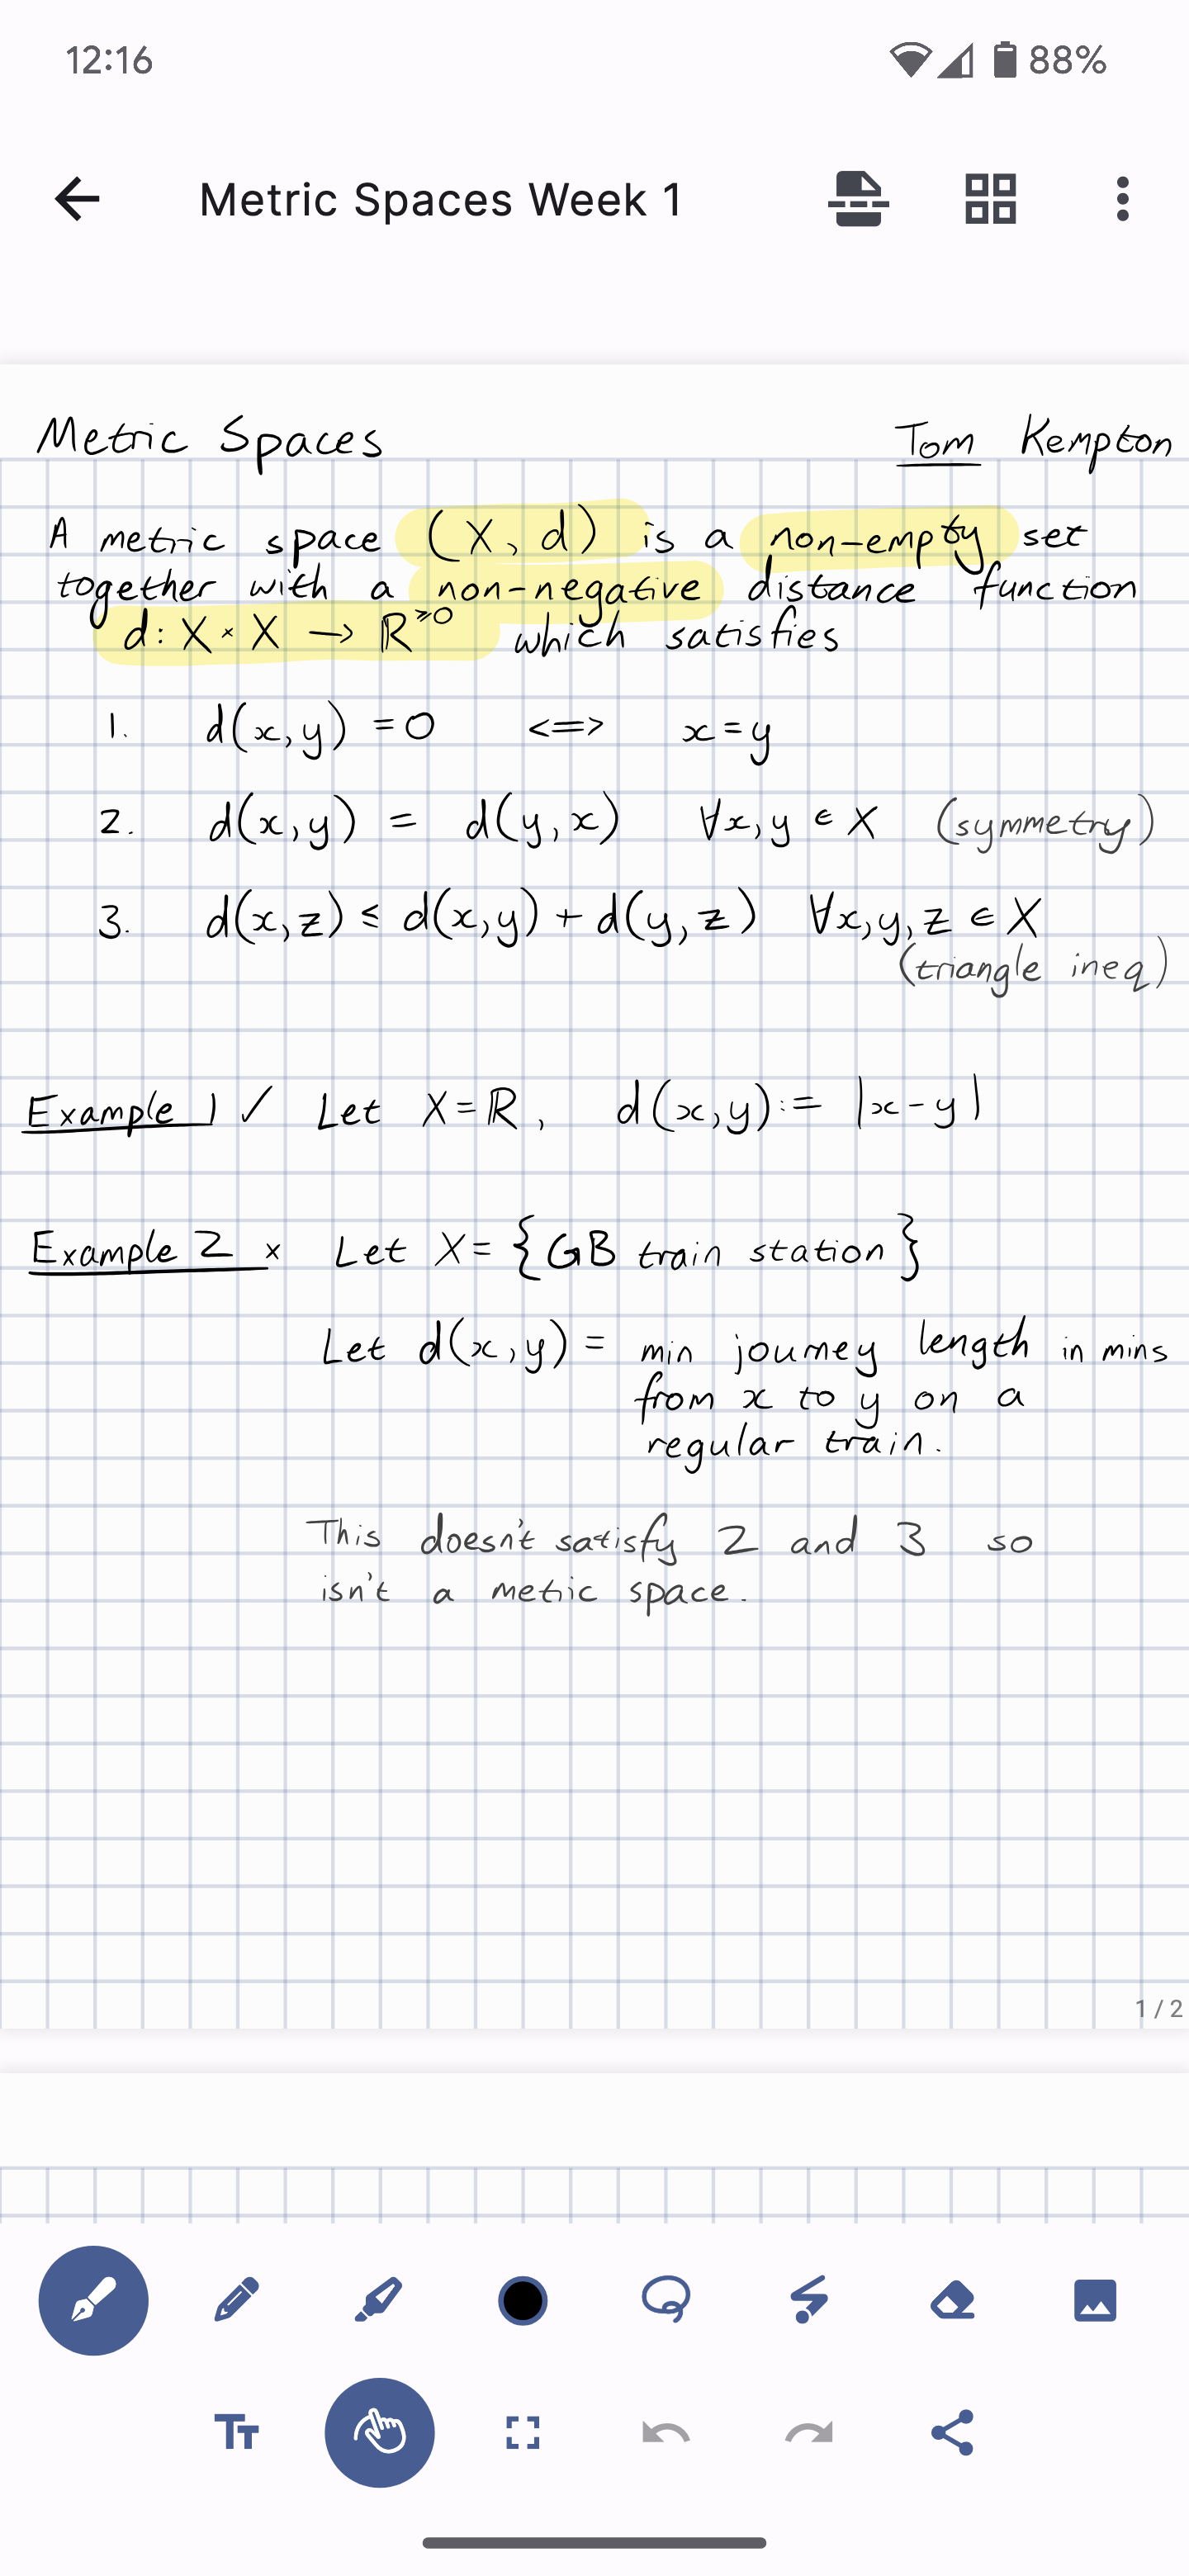 12:16 88%
Metric Spaces Week 1
Metric Spaces Tom Kempton
A metric space (X, d) is a non-empty set
together with a non-negative distance function
d: X × X → ℝ^≥0 which satisfies
1. d(x,y) = 0 <=> x=y
2. d(x,y) = d(y,x) ∀x,y ∈ X (symmetry)
3. d(x,z) ≤ d(x,y) + d(y,z) ∀x,y,z ∈ X
(triangle ineq)
Example 1 ✓ Let X=ℝ, d(x,y):= |x-y|
Example 2 × Let X= {GB train station}
Let d(x,y) = min journey length in mins
from x to y on a
regular train.
This doesn't satisfy 2 and 3 so
isn't a metic space.
1 / 2
TT